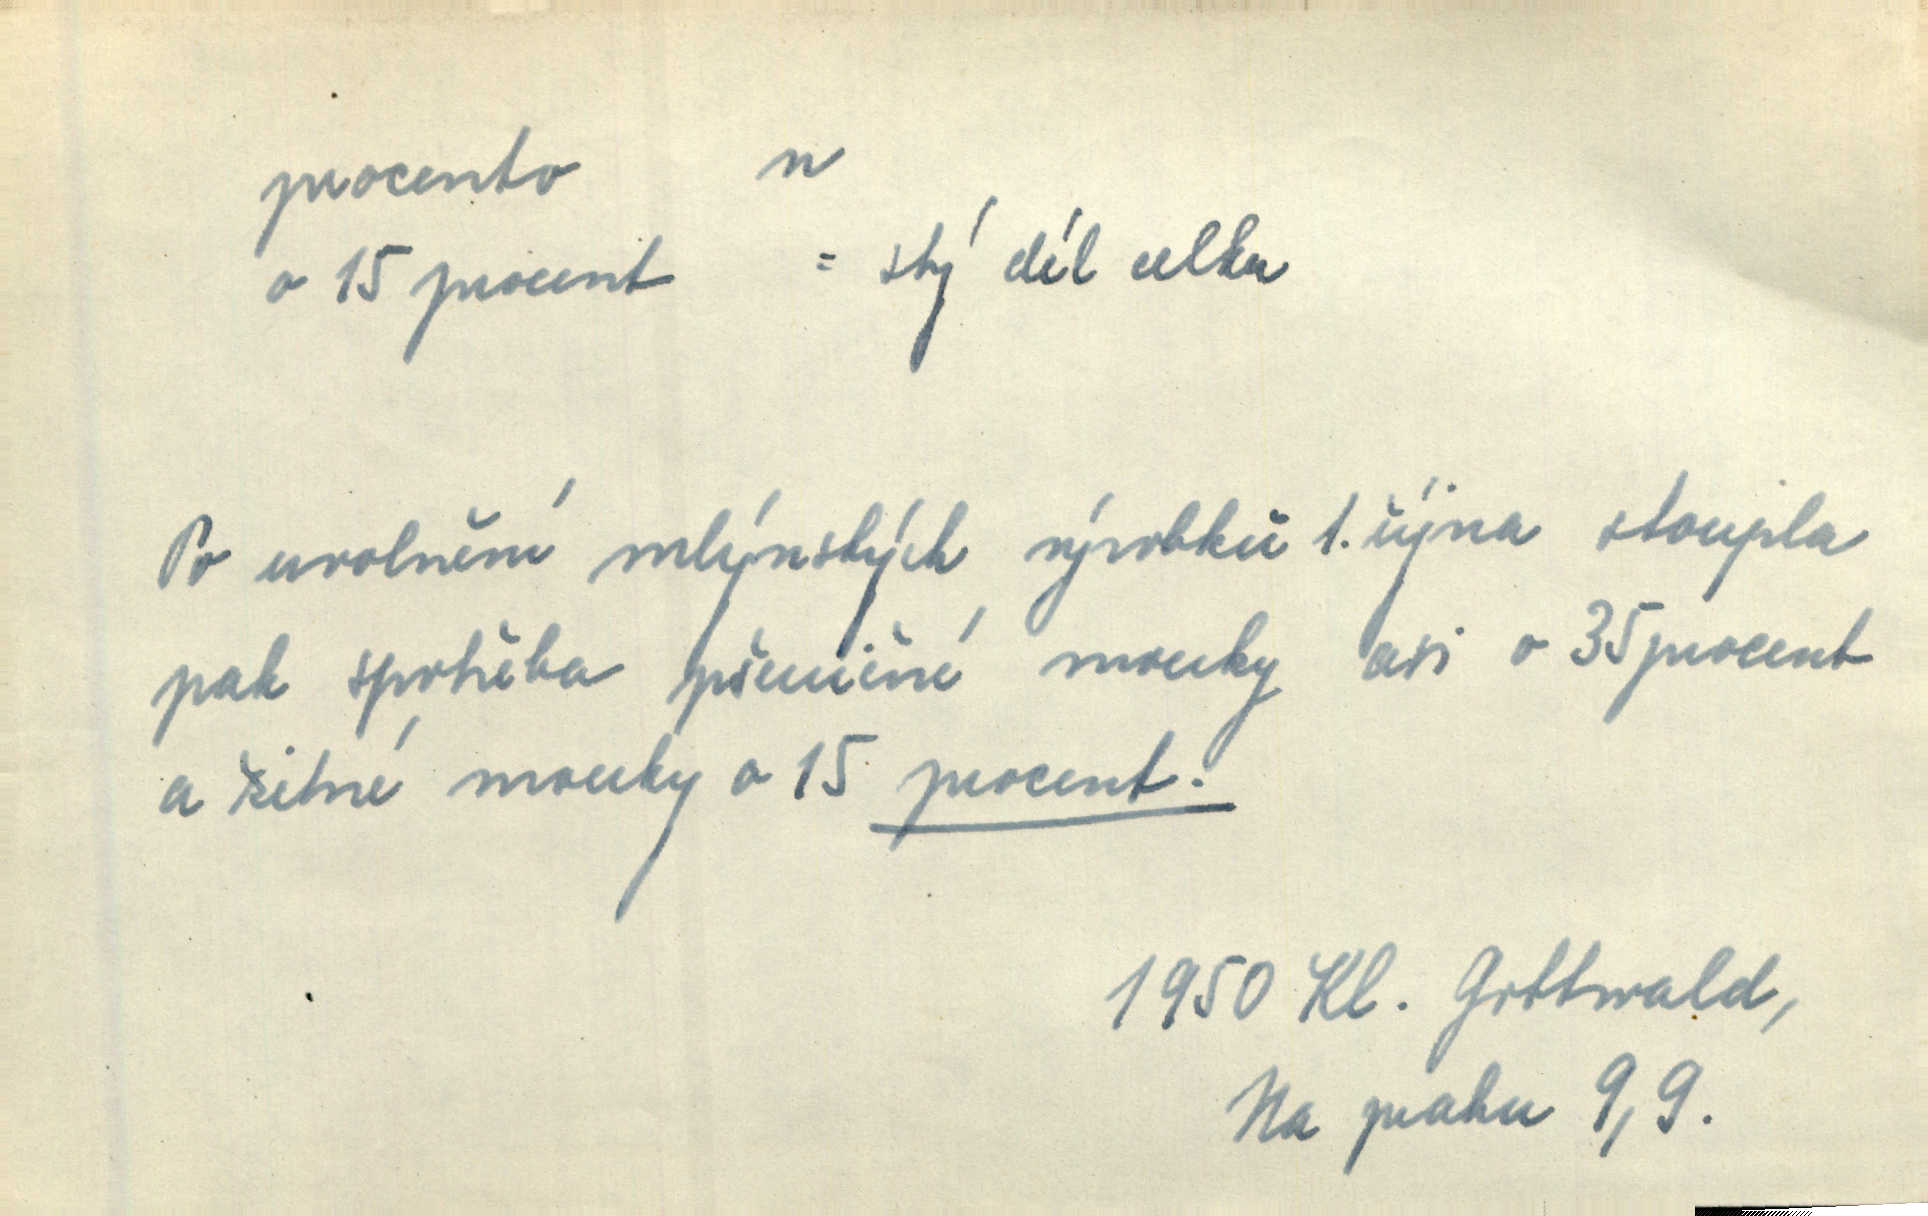 procento n
o 15 procent = stý díl celku
Po uvolnění mlýnských výrobků 1. října stoupla
pak spotřeba pšeničné mouky asi o 35 procent
a žitné mouky o 15 procent.
1950 Kl. Gottwald,
Na prahu 9, 9.